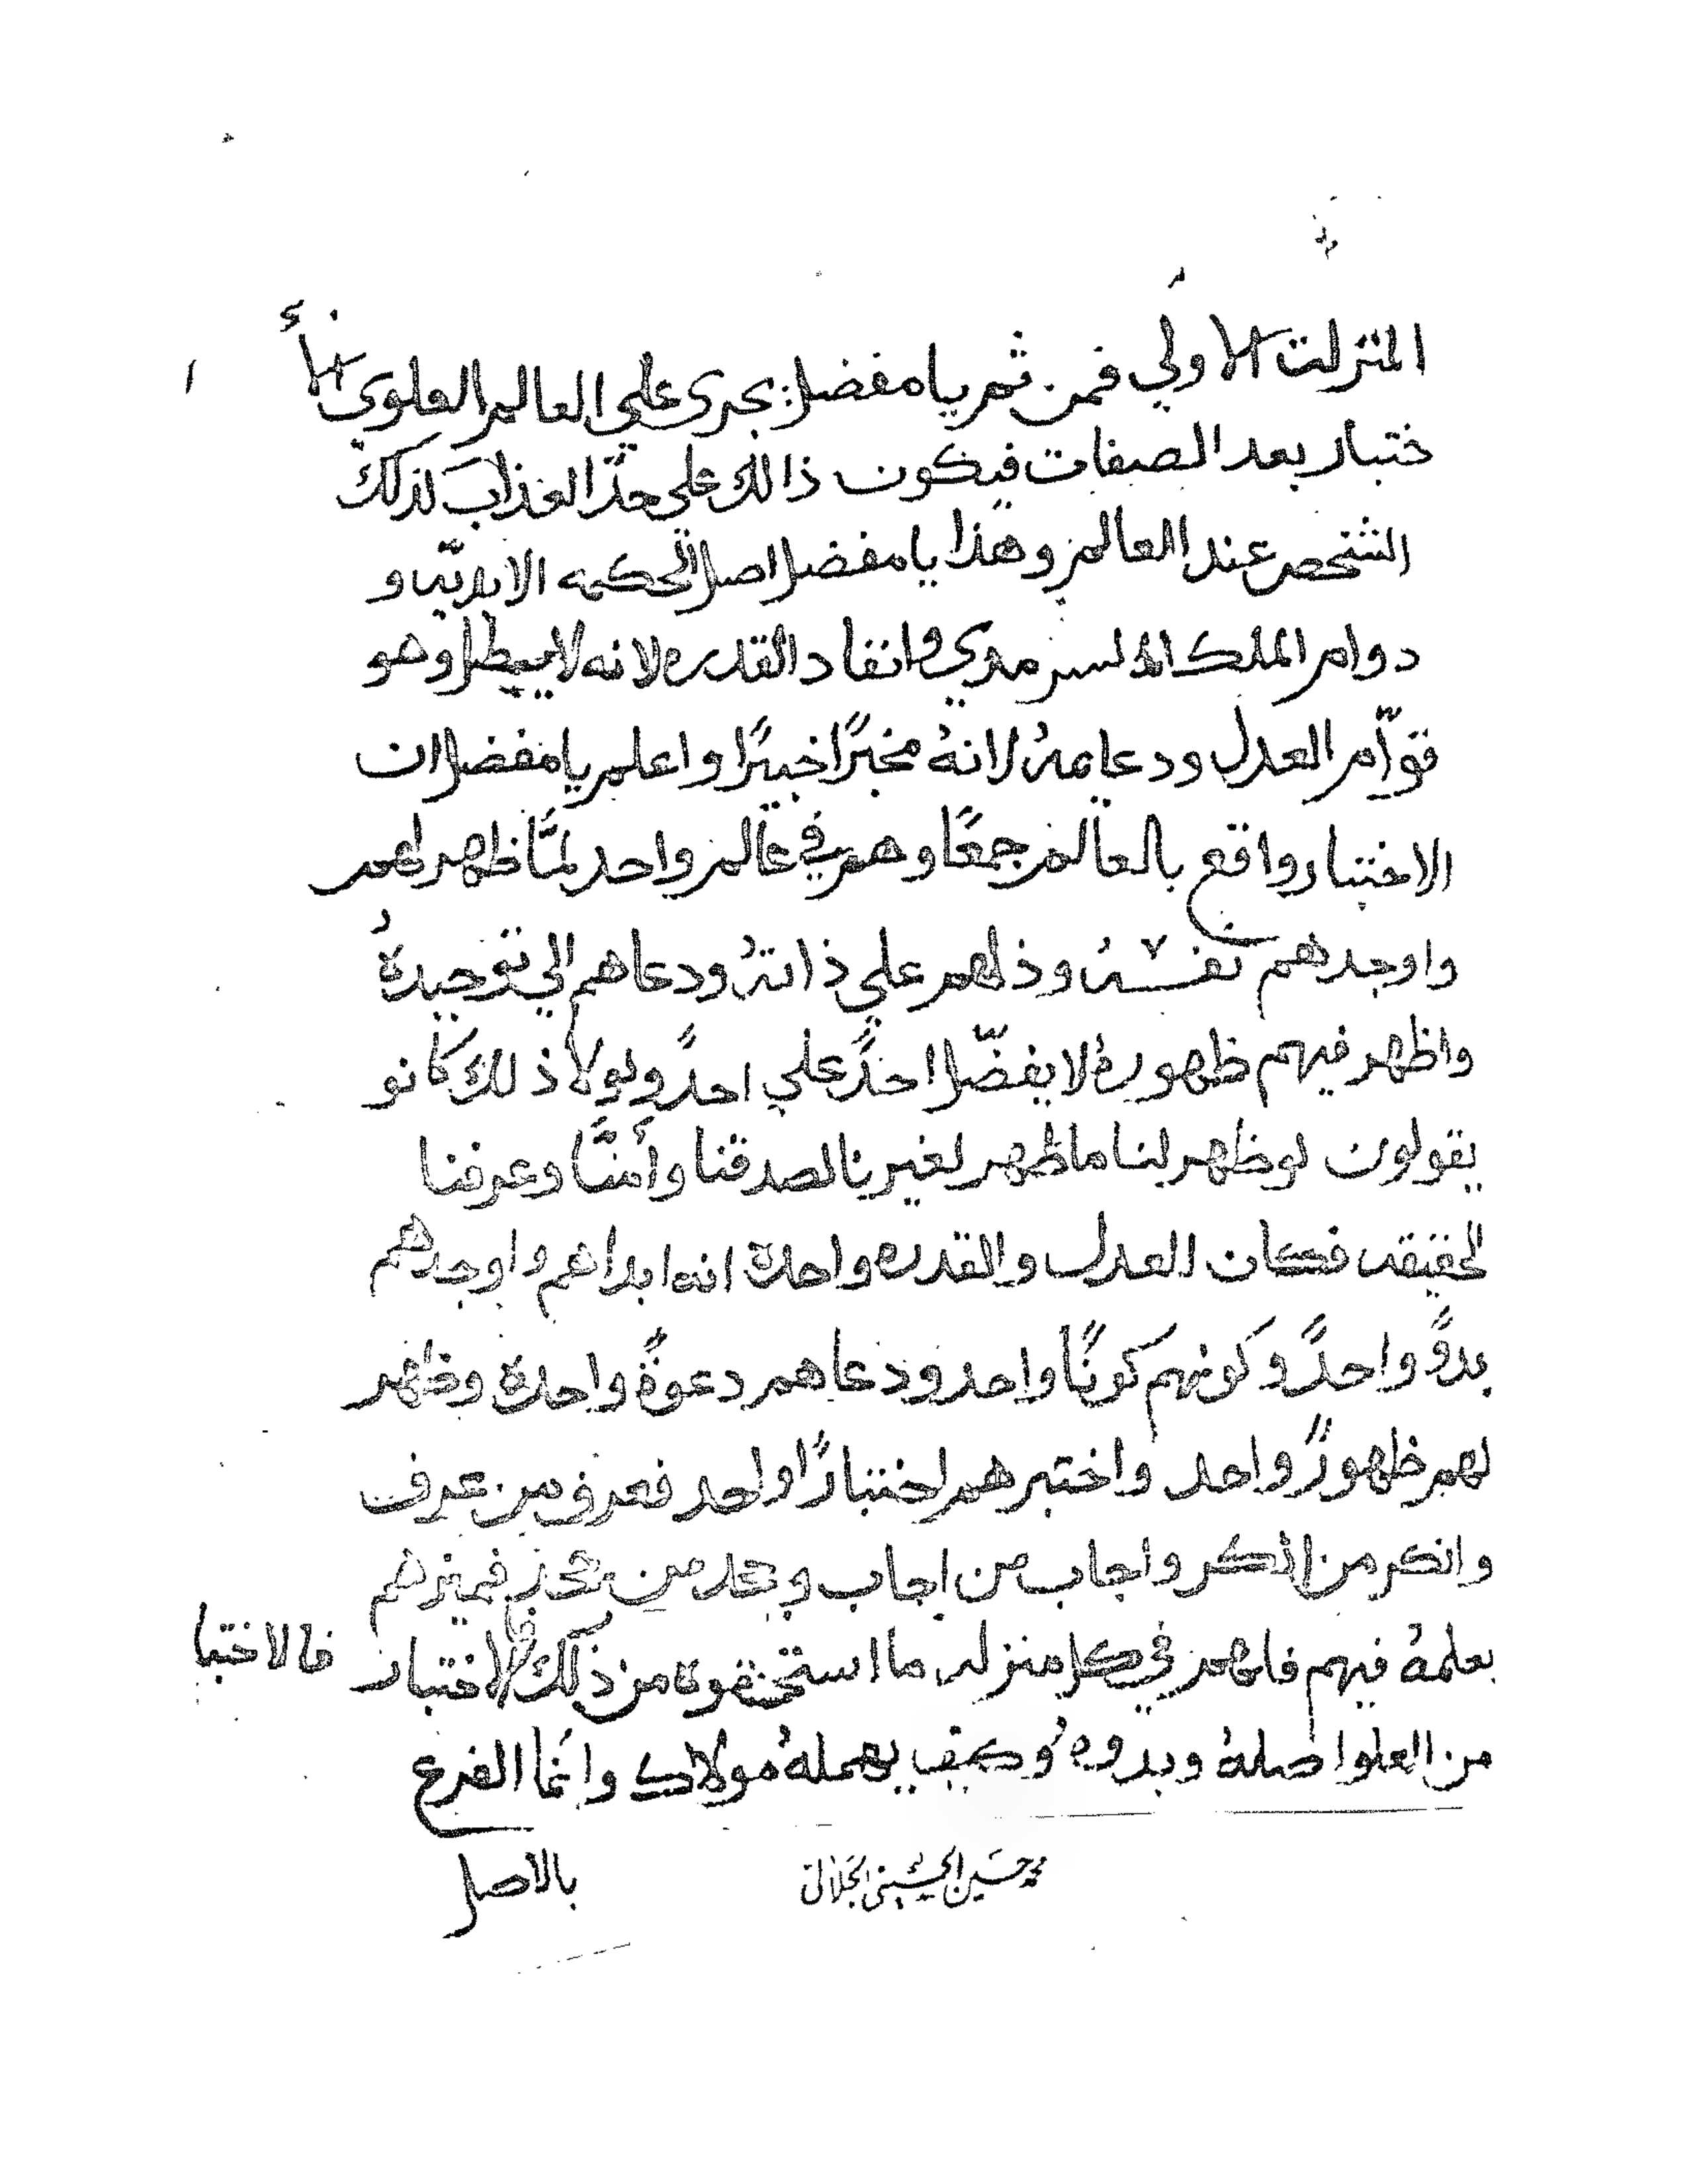 المنزلت الاولي فمن ثم يا مفضل يجرى علي العالم العلوي الأ
ختبار بعد الصفات فيكون ذالك علي حدّ العذاب لذلك
الشخص عند العالم وهذا يا مفضل اصل الحكمه الابديّه و
دوام الملك السرمدي وانفاد القدره لانه لا يبطل وهو
قوّام العدل ودعايمهُ لانهُ مخبرًا خبيرًا واعلم يا مفضل ان
الاختبار واقع بالعالم جمعًا وهم في عالم واحد لمَّا ظهر لهم
واوجدهم نفسهُ وذلهم علي ذاتهُ ودعاهم الي توحيدهُ
واظهر فيهم ظهورهُ لا يفضّل احدًا علي احدً ولولا ذلك كانو
يقولون لو ظهر لنا ما ظهر لغيرنا لصدقنا وأمنَّا وعرفنا
الحقيقه فكان العدل والقدره واحدة انه ابداهم واوجدهم
بدوً واحدً وكونهم كونًا واحد ودعاهم دعوةً واحدة وظهر
لهم ظهورً واحد واختبرهم اختبارًا واحد فعرف من عرف
وانكر من انكر واجاب من اجاب وجحد من جحد فميزهم
بعلمهُ فيهم فلهم في كل منزله ما استحقوه من ذلك الاختبار فالاختبا
من العلو اصلهُ وبدوهُ وكيف يهملهُ مولاك وانما الفرع
بالاصل
محمد حسين الحسيني الجلالي